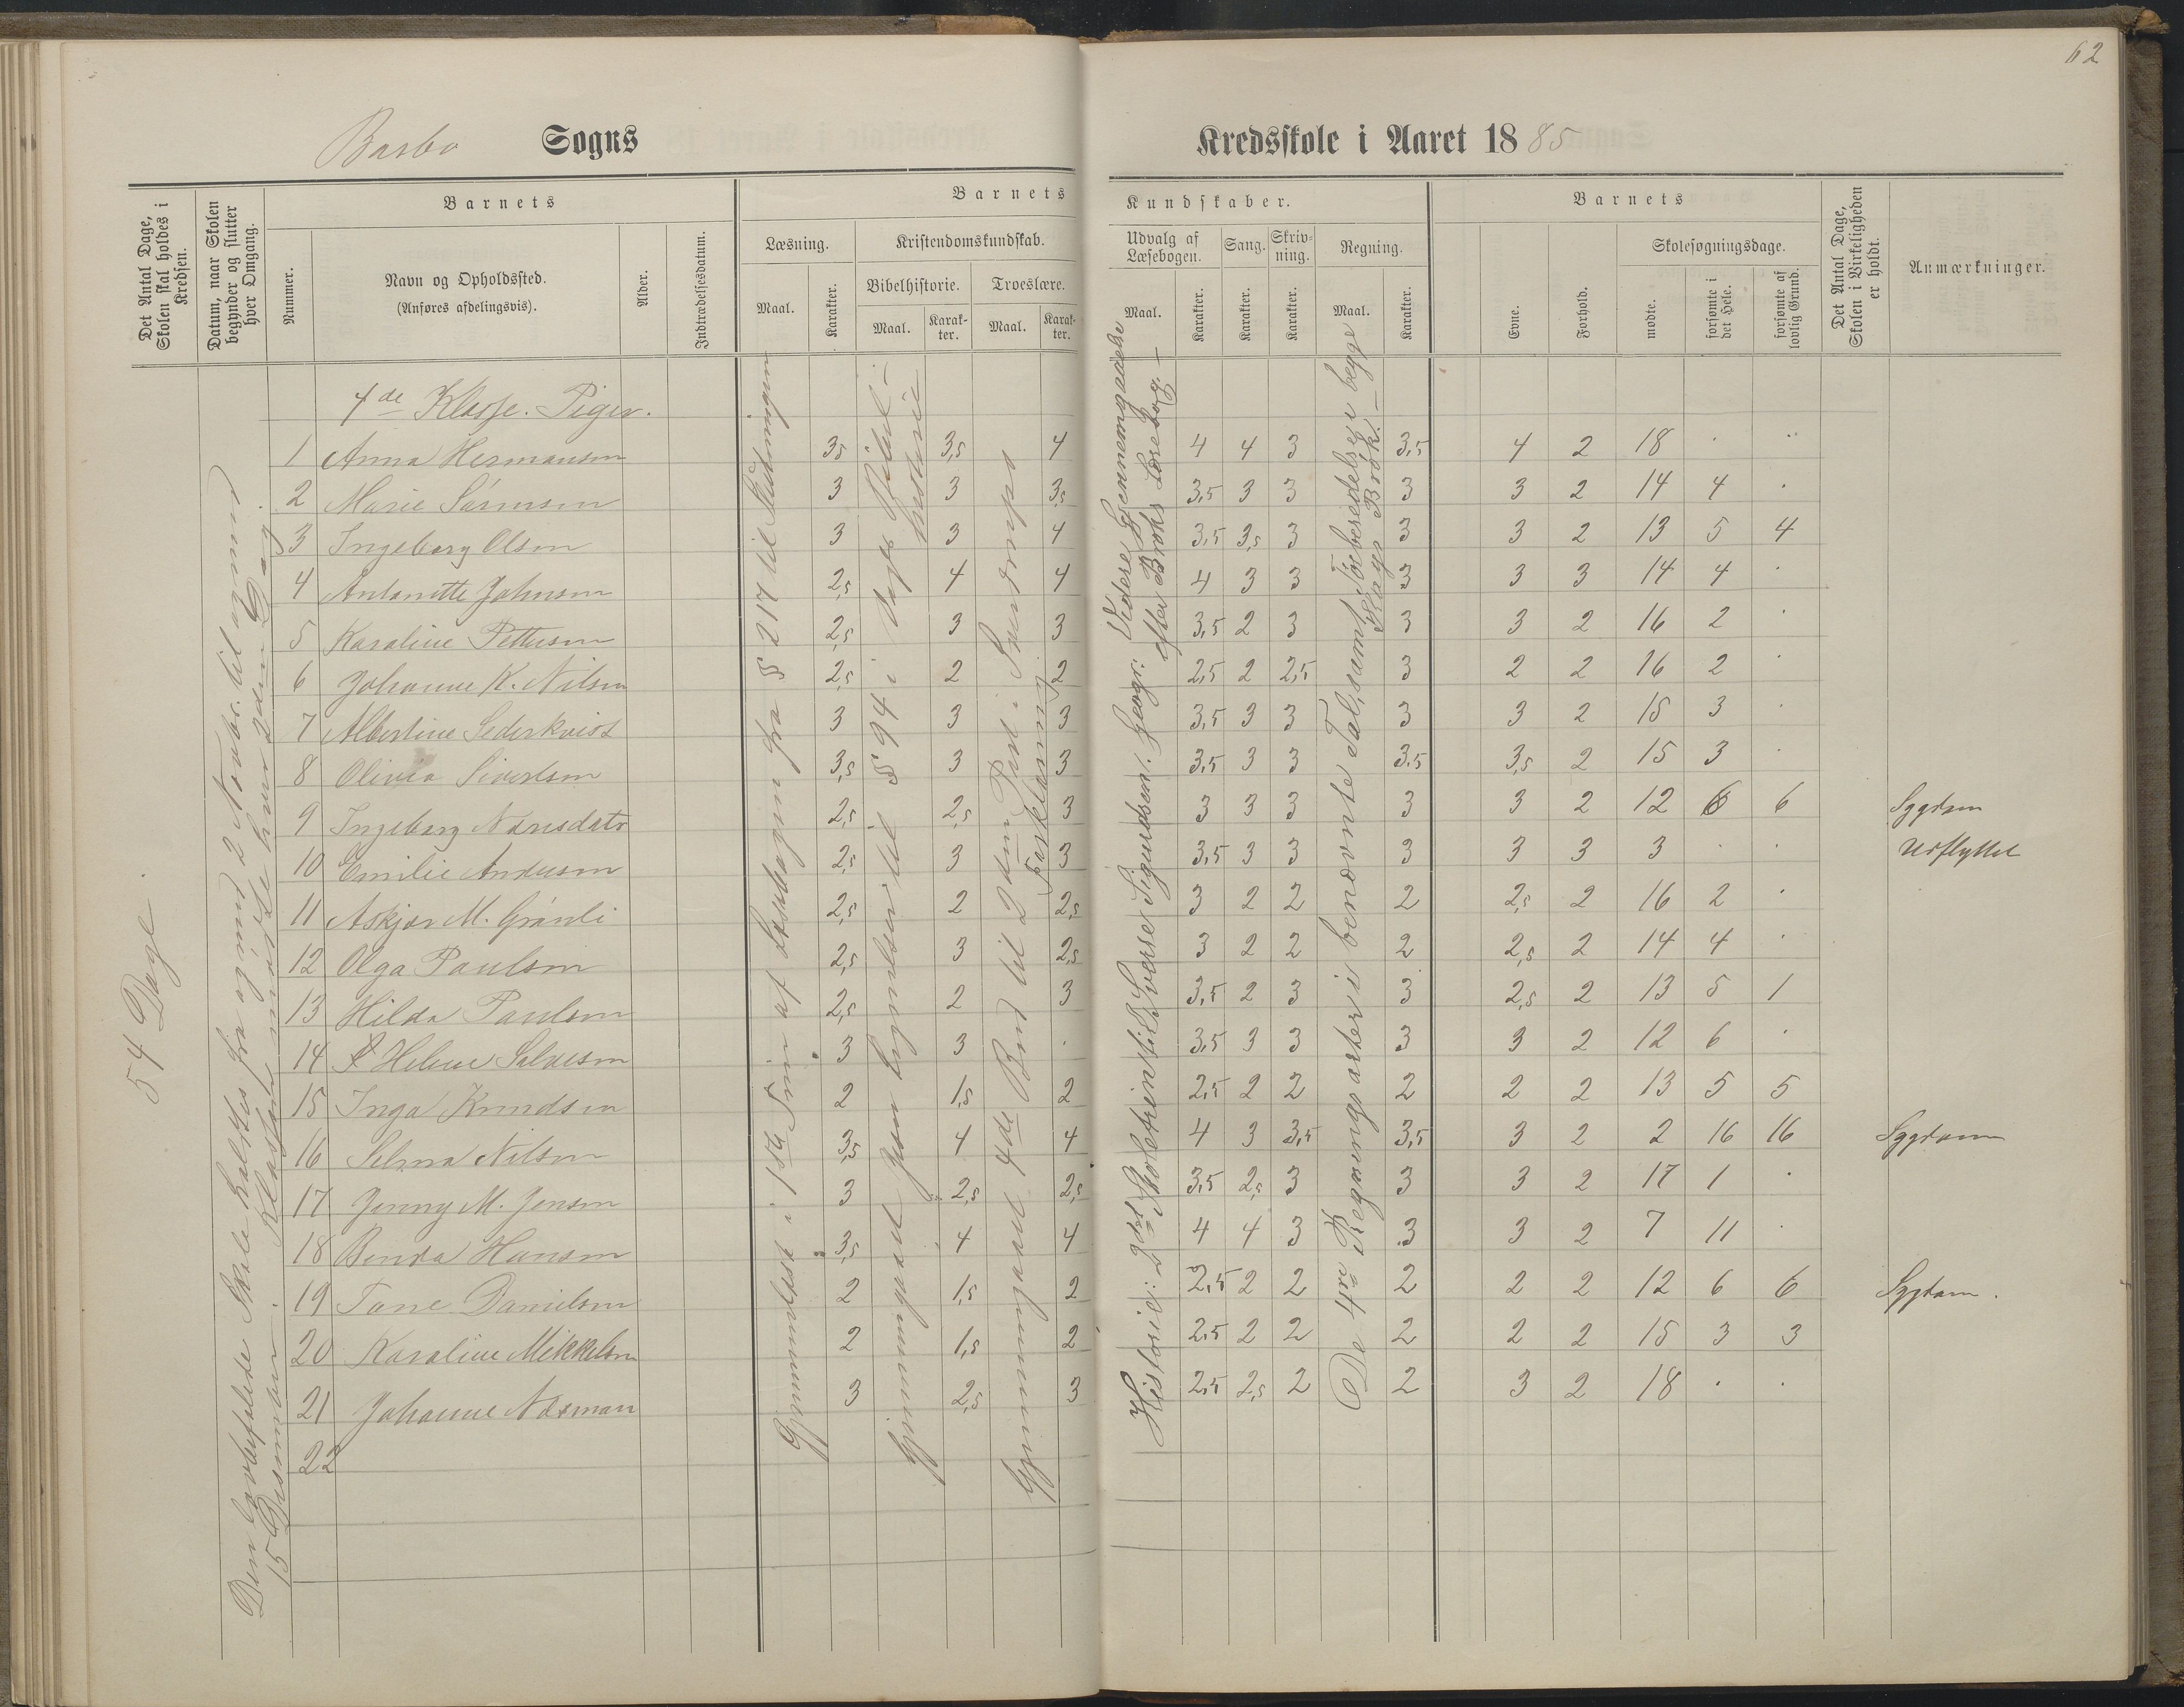 62
Barbo Sogns Kredsskole i Aaret 1885
Det Antal Dage, Skolen skal holdes i Kredsen.
Datum, naar Skolen begynder og slutter hver Omgang.
Barnets
Nummer.
Navn og Opholdssted.
(Anføres afdelingsvis).
Alder.
Indtrædelsesdatum.
Barnets Kundskaber.
Læsning.
Maal.
Karakter.
Kristendomskundskab.
Bibelhistorie.
Maal.
Karakter.
Troeslære.
Maal.
Karakter.
Udvalg af Læsebogen.
Maal.
Karakter.
Sang.
Karakter.
Skrivning.
Karakter.
Regning.
Maal.
Karakter.
Barnets
Evne.
Forhold.
Skolesøgningsdage.
mødte.
forsømte i det Hele.
forsømte af lovlig Grund.
Det Antal Dage, Skolen i Virkeligheden er holdt.
Anmærkninger.
54 Dage
Skole holdtes fra og med 2 Novbr. til og med
15 Klassen mødte hver 2den Dag.
Gjennemlæst i 1ste Trin af Læsebogen fra § 217 til Slutningen
Gjennemgaaet til § 94 i Vogts Bibelhistorie
Gjennemgaaet 4de Bud til 2den Part i Sverdrups Forklaring
Historie: 2det Skoletrin til Sverre Sigurdsen. Geogr: Videre Gjennemgaaelse
efter Broks Læsebog. –
De 4re Regningsarter i benævnte Tal, samt Forberedelse i begge
Slags Brøk. –
4de Klasse. Piger.
1 Anna Hermansen 3,5 3,5 4 4 4 3 3,5 4 2 18 . ..
2 Marie Sørensen 3 3 3,5 3,5 3 3 3 3 2 14 4 .
3 Ingeborg Olsen 3 3 4 3,5 3,5 3 3 3 2 13 5 4
4 Antonette Johnsen 2,5 4 4 4 3 3 3 3 3 14 4 .
5 Karoline Pettersen 2,5 3 3 3,5 2 3 3 3 2 16 2 .
6 Johanne K. Nilsen 2,5 2 2 2,5 2 2,5 3 2 2 16 2 .
7 Albertine Sederkvist 3 3 3 3,5 3 3 3 3 2 15 3 .
8 Olivia Sivertsen 3,5 3 3 3,5 3 3 3,5 3,5 2 15 3 .
9 Ingeborg 2,5 2,5 3 3 3 3 3 3 2 12 6 6 Sygdom
10 Emilie Andersen 2,5 3 3 3,5 3 3 3 3 3 3 . . Udflyttet
11 Askjer M. Grønli 2,5 2 2,5 3 2 2 2 2,5 2 16 2 .
12 Olga Paulsen 2,5 3 2,5 3 2 2 2 2,5 2 14 4 .
13 Hilda Paulsen 2,5 2 3 3,5 2 3 3 2,5 2 13 5 1
14 Helene Salvesen 3 3 . 3,5 3 3 3 3 2 12 6 .
15 Inga Knudsen 2 1,5 2 2,5 2 2 2 2 2 13 5 5
16 Selma Nilsen 3,5 4 4 4 3 3,5 3,5 3 2 2 16 16 Sygdom
17 Jenny M. Jensen 3 2,5 2,5 3,5 2,5 3 3 3 2 17 1 .
18 Benda Hansen 3,5 4 4 4 4 3 3 3 2 7 11 .
19 Tone Danielsen 2 1,5 2 2,5 2 2 2 2 2 12 6 6 Sygdom.
20 Karoline Mikkelsen 2 1,5 2 2,5 2 2 2 2 2 15 3 3
21 Johanne Næsman 3 2,5 3 2,5 2,5 2 2 3 2 18 . .
22